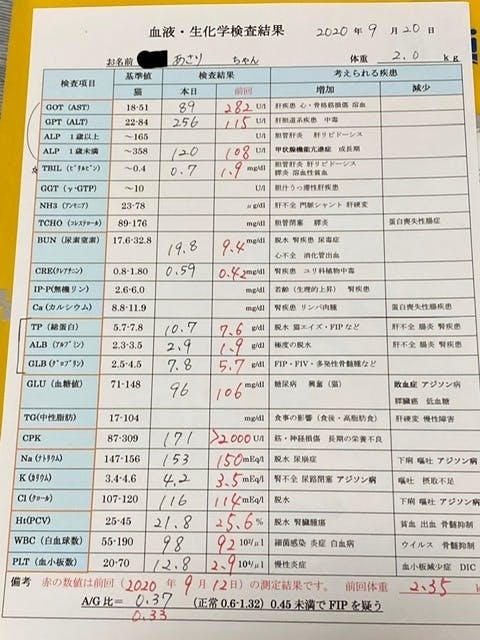 血液・生化学検査結果 2020年9月20日
お名前 あさり ちゃん 体重 2.0 kg
検査項目 基準値 検査結果 考えられる疾患
猫 本日 前回 増加 減少
GOT (AST) 18-51 89 282 U/l 肝疾患 心・骨格筋損傷 溶血
GPT (ALT) 22-84 256 115 U/l 肝胆道系疾患 中毒
ALP 1歳以上 ~165 U/l 胆管肝炎 肝リピドーシス
ALP 1歳未満 ~358 120 108 U/l 甲状腺機能亢進症 成長期
TBIL (ビリルビン) ~0.4 0.7 1.9 mg/dl 胆管肝炎 肝リピドーシス
膵炎 溶血性貧血
GGT (γ-GTP) ~10 U/l 胆汁うっ滞性肝疾患
NH3 (アンモニア) 23-78 μg/dl 肝不全 門脈シャント 肝硬変
TCHO (コレステロール) 89-176 mg/dl 胆管閉塞 膵炎 蛋白喪失腸症
BUN (尿素窒素) 17.6-32.8 19.8 9.4 mg/dl 脱水 腎疾患 尿毒症
心不全 消化管出血
CRE(クレアチニン) 0.8-1.80 0.59 0.42 mg/dl 腎疾患 ユリ科植物中毒
IP-P(無機リン) 2.6-6.0 mg/dl 若齢(生理的上昇) 腎疾患
Ca (カルシウム) 8.8-11.9 mg/dl 腎疾患 リンパ肉腫 蛋白喪失腸疾患
TP (総蛋白) 5.7-7.8 10.7 7.6 g/dl 脱水 猫エイズ・FIPなど 肝不全 腸炎 腎疾患
ALB (アルブミン) 2.3-3.5 2.9 1.9 g/dl 極度の脱水 肝不全 腸炎 腎疾患
GLB (グロブリン) 2.5-4.5 7.8 5.7 g/dl FIP・FIV・多発性骨髄腫など
GLU (血糖値) 71-148 96 106 mg/dl 糖尿病 興奮(猫) 敗血症 アジソン病
膵臓癌 低血糖
TG(中性脂肪) 17-104 mg/dl 食事の影響(食後・高脂肪食) 肝硬変 慢性障害
CPK 87-309 171 >2000 U/l 筋・神経損傷 長期の栄養不良
Na (ナトリウム) 147-156 153 150 mEq/l 脱水 尿崩症 下痢 嘔吐 アジソン病
K (カリウム) 3.4-4.6 4.2 3.5 mEq/l 腎不全 尿路閉塞 アジソン病 嘔吐 摂取不足
Cl (クロール) 107-120 116 114 mEq/l 脱水 下痢 嘔吐 アジソン病
Ht(PCV) 25-45 21.8 25.6 % 脱水 腎臓腫瘍 貧血 出血 骨髄抑制
WBC (白血球数) 55-190 98 92 10²/μl 細菌感染 炎症 白血病 ウイルス 骨髄抑制
PLT (血小板数) 20-70 12.8 2.9 10⁴/μl 慢性炎症 血小板減少症 DIC
備考 赤の数値は前回(2020年9月12日)の測定結果です。 前回体重 2.35 kg
A/G 比= 0.37 (正常 0.6-1.32) 0.45 未満で FIP を疑う
0.33